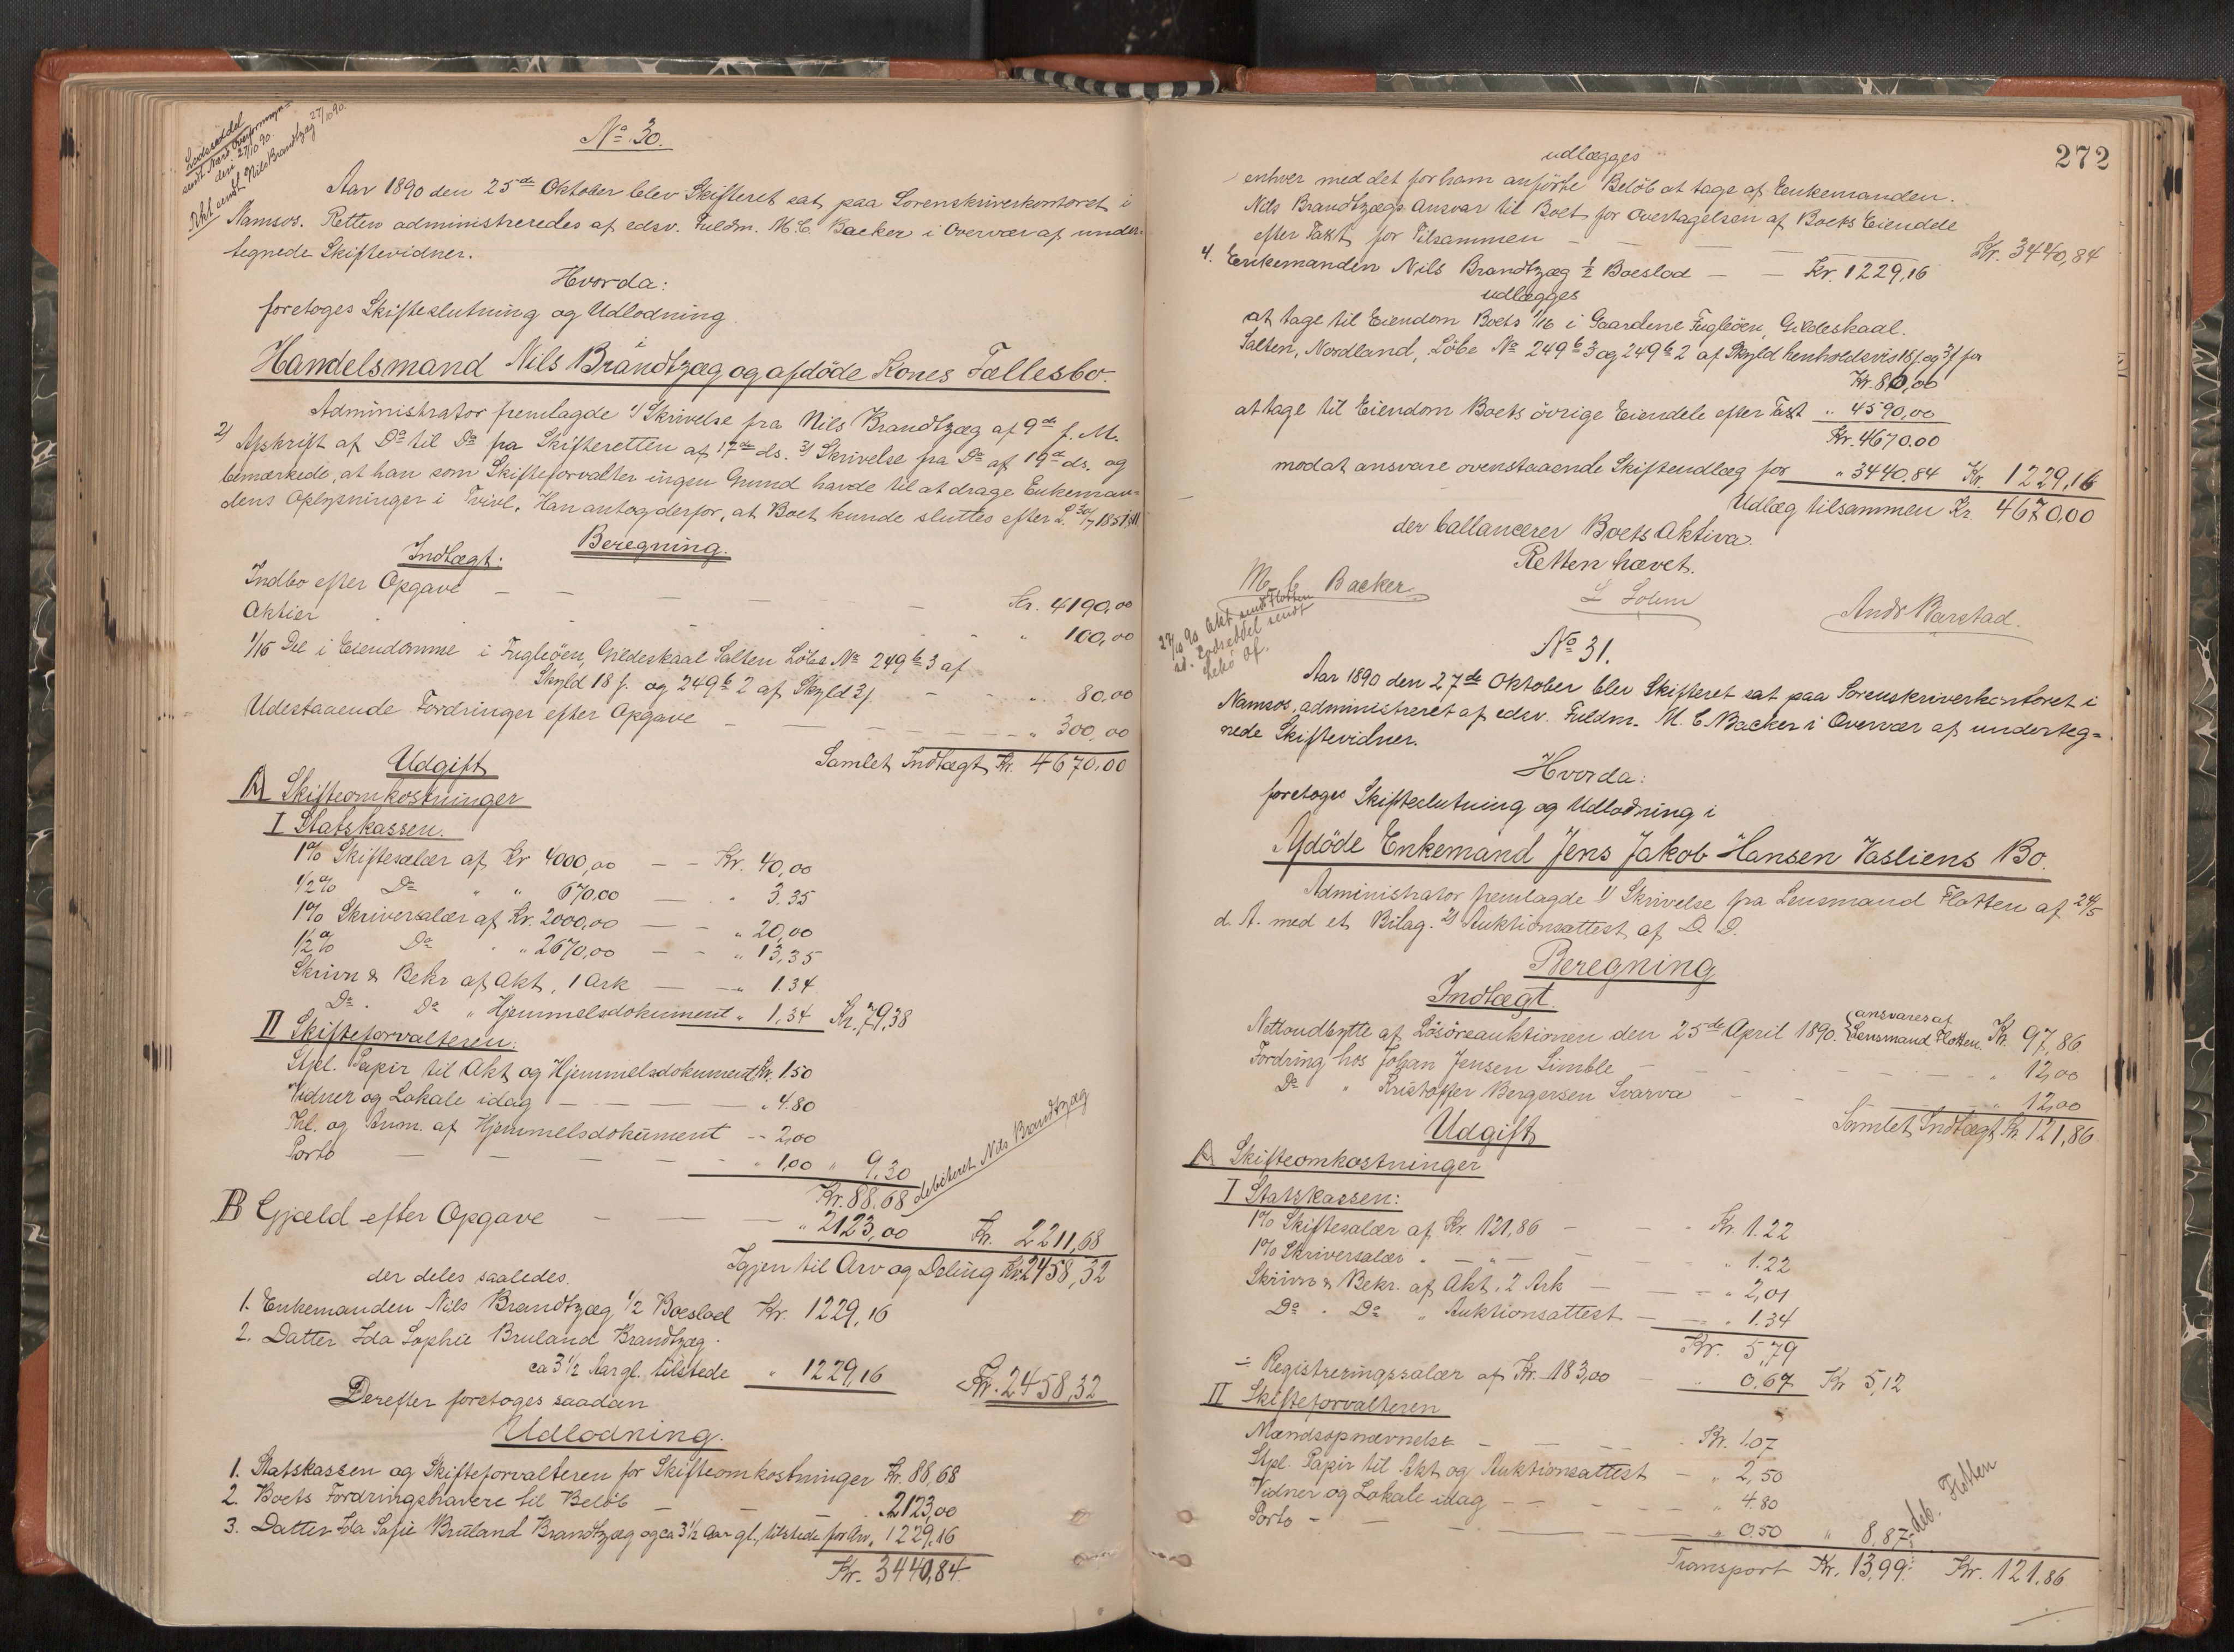 Lodseddel
sendt Nams Overformyn=
deri 27/10 90.
Akt sendt Nils Brandtzæg 27/10 90.
No 30.
Aar 1890 den 25de Oktober blev Skifteret sat paa Sorenskriverkontoret i
Namsos. Retten administreredes af edsv. Fuldm. M. C. Backer i Overvær af under-
tegnede Skiftevidner.
Hvorda:
foretoges Skifteslutning og Udlodning
i
Handelsmand Nils Brandtzæg og afdöde Kones Fællesbo.
Administrator fremlagde 1) Skrivelse fra Nils Brandtzæg af 9de f. M.
2) Afskrift af Do til Do fra Skifteretten af 17de ds. 3) Skrivelse fra Do af 19de ds. og
bemærkede, at han som Skifteforvalter ingen Grund havde til at drage Enkeman=
dens Oplysninger i Tvivl. Han antog derfor, at Boet kunde sluttes efter L. 30/7 1851 § 11
Beregning.
Indtægt:
Indbo efter Opgave — — — — — Kr. 4190,00
Aktier " 100,00
1/16 Del i Eiendomme i Fugleöen, Gildeskaal Salten Löbe No 249 b 3 af
Skyld 18 f. og 249 b 2 af Skyld 3 f. - - - " 80,00
Udestaaende Fordringer efter Opgave — — — — " 300,00
Samlet Indtægt Kr. 4670,00
Udgift
A Skifteomkostninger
I Statskassen.
1% Skiftesalær af Kr 4000,00 — - Kr. 40,00
1/2% Do " " 670,00 — " 3.35
1% Skriversalær af Kr. 2000,00 — - " 20,00
1/2% Do " " 2670,00 — - " 13,35
Skrivn & Bekr af Akt, 1 Ark — — " 1.34
Do . Do " Hjemmelsdokument " 1,34 Kr. 79,38
II Skifteforvalteren:
Stpl. Papir til Akt og Hjemmelsdokument Kr. 1.50
Vidner og Lokale idag — — — — " 4.80
Thl. og Anm. af Hjemmelsdokument - - 2,00
Porto — — — — — " 1,00 " 9.30
Kr. 88.68 debiteret Nils Brandtzæg
B Gjæld efter Opgave — — — " 2123,00 Kr. 2211,68
Igjen til Arv og Deling Kr. 2458,32
der deles saaledes.
1. Enkemanden Nils Brandtzæg 1/2 Boeslod Kr. 1229,16
2. Datter Ida Sophie Bruland Brandtzæg.
ca 3 1/2 Aar gl. tilstede " 1229,16 Kr. 2458,32
Derefter foretoges saadan
Udlodning.
1. Statskassen og Skifteforvalteren for Skifteomkostninger Kr. 88,68
2. Boets Fordringshavere til Beløb — — - " 2123,00
3. Datter Ida Sofie Bruland Brandtzæg og ca 3 1/2 Aar gl., tilstede for Arv, 1229,16
Kr. 3440,84.
272
udlægges
enhver med det for ham anførte Beløb at tage af Enkemanden.
Nils Brandtzægs Ansvar til Boet for Overtagelsen af Boets Eiendele
efter Takst for Tilsammen — — — — Kr. 3440,84
4. Enkemanden Nils Brandtzæg 1/2 Boeslod — — Kr. 1229,16
udlægges
at tage til Eiendom Boets 1/16 i Gaardene Fugleöen, Gildeskaal.
Salten, Nordland, Löbe No 249 b 3 og 249 b 2 af Skyld henholdsvis 18 f og 3 f for
Kr. 80,00
at tage til Eiendom Boets övrige Eiendele efter Taxt " 4590,00
Kr. 4670.00
mod at ansvare ovenstaaende Skifteudlæg for " 3440.84 Kr. 1229,16
Udlæg tilsammen Kr. 4670,00
der ballancerer Boets Aktiva.
Retten hævet.
M. C. Backer.
Andr Barstad.
27/10 90 Akt sendt Flotten
No 31.
Aar 1890 den 27de Oktober blev Skifteret sat paa Sorenskriverkontoret i
Namsos, administreret af edsv. Fuldm. M. C. Backer i Overvær af underteg=
nede Skiftevidner.
Hvorda:
foretoges Skifteslutning og Udlodning i
Afdöde Enkemand Jens Jakob Hansen Vasliens Bo.
Administrator fremlagde 1) Skrivelse fra Lensmand Flotten af 24/5
d. A. med et Bilag. 2) Auktionsattest af D. D.
Beregning
Indtægt.
Nettoudbytte af Lösöreauktionen den 25de April 1890. ansvares af Lensmand Flotten. Kr. 97,86.
Fordring hos Johan Jensen Limble — - - - - " 12,00
Do " Kristoffer Bergersen Svarva - - " 12,00
Samlet Indtægt Kr 121,86
Udgift
A Skifteomkostninger
I Statskassen:
1% Skiftesalær af Kr 121,86 — - - Kr. 1.22
1% Skriversalær " — " — - " 1.22
Skrivn & Bekr. af Akt, 2 Ark — — - " 2,01
Do . Do " Auktionsattest — — " 1.34
Kr. 5,79
÷ Registreringssalær af Kr. 183,00 — " 0.67 Kr 5,12
II Skifteforvalteren
Mændsopnævnelse — - — — - Kr. 1,07
Stpl. Papir til Akt og Auktionsattest — " 2,50
Vidner og Lokale idag — — - — - " 4.80
Porto — — — — " 0.50 " 8,87 deb. Flotten
Transport Kr. 13,99. Kr. 121,86